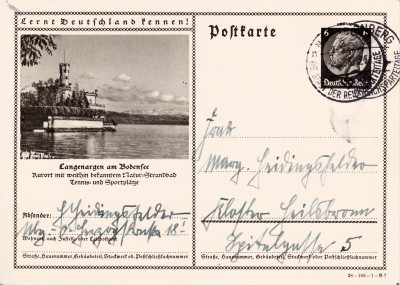 Lernt Deutschland kennen!
Postkarte
6 6
Deutsches Reich
DER REICHSPARTEITAGE
Langenargen am Bodensee
Kurort mit weithin bekanntem Natur-Strandbad
Tennis- und Sportplätze
Absender: Heidingsfelder
Straße 18
Wohnort, auch Zustell- oder Leitpostamt
Straße, Hausnummer, Gebäudeteil, Stockwerk od. Postschließfachnummer
Frau
Marg. Heidingsfelder
Kloster Heilsbronn
Spitalgasse 5
Straße, Hausnummer, Gebäudeteil, Stockwerk oder Postschließfachnummer